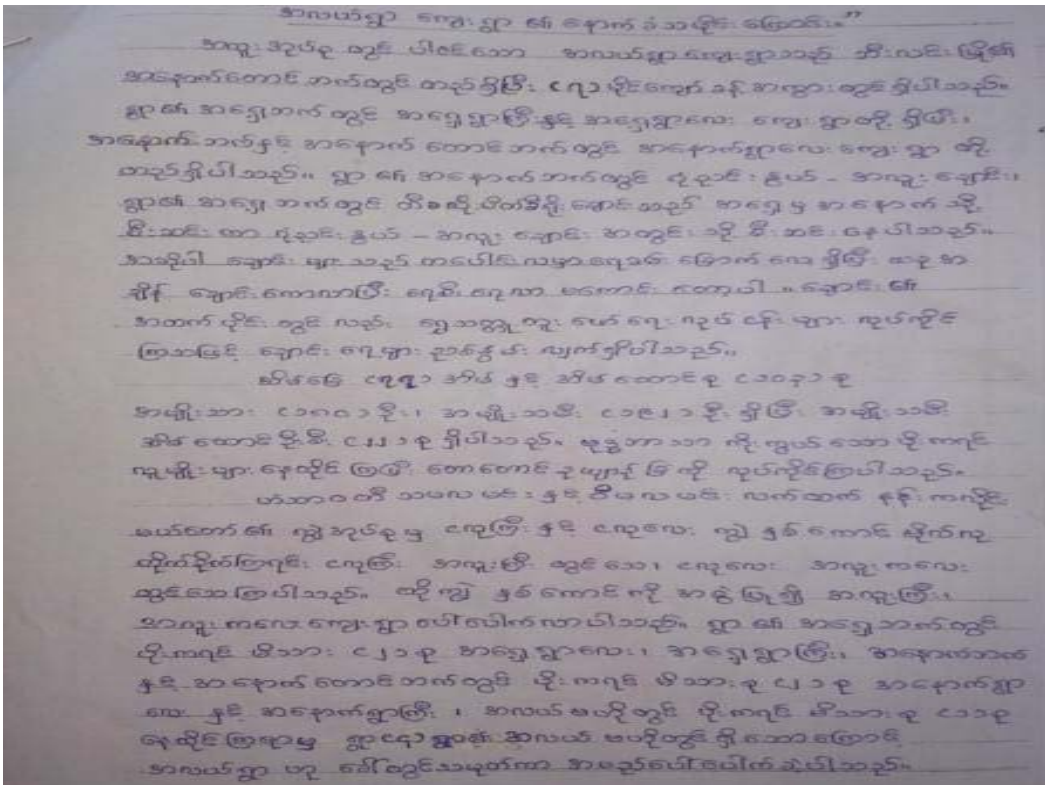 အလယ်ရွာ ကျေးရွာ ၏ နောက်ခံသမိုင်း ကြောင်း"
အလူးအုပ်စု တွင် ပါဝင်သော အလယ်ရွာကျေးရွာသည် ဘီးလင်းမြို့၏
အနောက်တောင်ဘက်တွင် တည်ရှိပြီး ( ၇ ) မိုင်ကျော် ခန့် အကွား တွင်ရှိပါသည်။
ရွာ၏ အရှေ့ဘက်တွင် အရှေ့ရွာကြီးနှင့် အရှေ့ရွာလေး ကျေးရွာတို့ ရှိပြီး၊
အနောက်ဘက်နှင့် အနောက် တောင်ဘက်တွင် အနောက်ရွာလေးကျေးရွာ တို့
တည်ရှိပါသည်။ ရွာ၏ အနောက်ဘက်တွင် နွယ် - အလူးချောင်း၊
ရွာ၏ အရှေ့ဘက်တွင် ချောင်းသည် အရှေ့မှ အနောက် သို့
စီးဆင်း ကာ နွယ် - အလူး ချောင်း အတွင်း သို့ စီးဆင်းနေပါသည်။
အဆိုပါ ချောင်း များသည် တပေါင်းလမှာရေခမ်း ခြောက် လေ့ရှိပြီး ယခုအ
ချိန် ချောင်းကောလာပြီး ရေစီးရေလာ မကောင်း တော့ပါ ။ ချောင်း၏
အထက်ပိုင်း တွင် လည်း ရွှေသတ္တု တူး ဖော်ရေး လုပ်ငန်းများ လုပ်ကိုင်
ကြသဖြင့် ချောင်း ရေများ ညစ်နွမ်း လျက်ရှိပါသည်။
အိမ်ခြေ ( ၇၇ ) အိမ် နှင့် အိမ်ထောင်စု ( ၁၀၃ ) စု
အမျိုးသား ( ၁၈၈ ) ဦး၊ အမျိုးသမီး ( ၁၉၂ ) ဦး ရှိပြီး အမျိုးသမီး
အိမ်ထောင်ဦးစီး ( ၂၂ ) စု ရှိပါသည်။ ဗုဒ္ဓဘာသာ ကိုးကွယ် သော ပိုးကရင်
လူမျိုးများ နေထိုင်ကြပြီး တောတောင် ဥယျာဉ်ခြံကို လုပ်ကိုင်ကြပါသည်။
ဟံသာဝတီ သမလမင်းနှင့် ဝိမလမင်း လက်ထက် နန်းကလိုင်
မယ်တော်၏ ကျွဲအုပ်စုမှ ငလူကြီးနှင့် ငလူလေး ကျွဲ နှစ်ကောင် လိုက်လု
တိုက်ခိုက်ကြရင်း ငလူကြီး အလူးကြီး တွင်သေ၊ ငလူလေး အလူးကလေး
တွင်သေကြပါသည်။ ထိုကျွဲ နှစ်ကောင်ကို အစွဲပြု၍ အလူးကြီး၊
အလူးကလေးကျေးရွာ ပေါ်ပေါက်လာပါသည်။ ရွာ၏ အရှေ့ဘက်တွင်
ပိုးကရင် မိသားစု ( ၂ ) စု အရှေ့ရွာလေး၊ အရှေ့ရွာကြီး၊ အနောက်ဘက်
နှင့် အနောက်တောင်ဘက်တွင် ပိုးကရင် မိသားစု ( ၂ ) စု အနောက်ရွာ
လေး နှင့် အနောက်ရွာကြီး ၊ အလယ်ဗဟိုတွင် ပိုးကရင် မိသားစု ( ၁ ) စု
နေထိုင်ကြရာမှ ရွာ ( ၄ ) ရွာ၏ အလယ် ဗဟိုတွင်ရှိသောကြောင့်
အလယ်ရွာ ဟု ခေါ်တွင်သမုတ်ကာ အမည်ပေါ်ပေါက်ခဲ့ပါသည်။